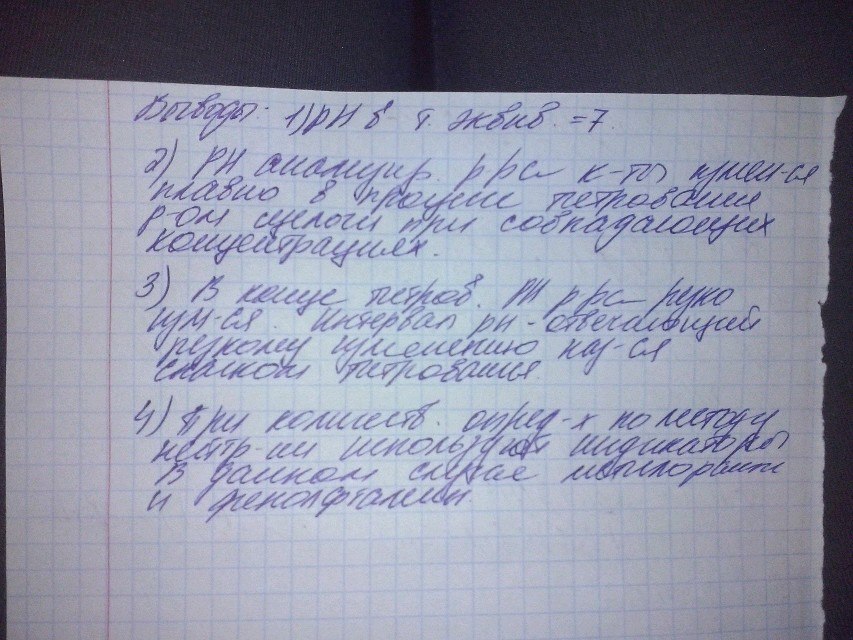 Выводы: 1) pH в т. эквив. = 7.
2) PH р-ра к-ты измен-ся
плавно в процессе титрования
р-ом щелочи при совпадающих
концентрациях.
3) В конце титров. PH р-ра резко
изм-ся. Интервал pH - отвечающий
резкому изменению наз-ся
скачком титрования.
4) При количеств. опред-х по методу
нейтр-ии используют индикаторы
В данном случае метилоранж
и фенолфталеин